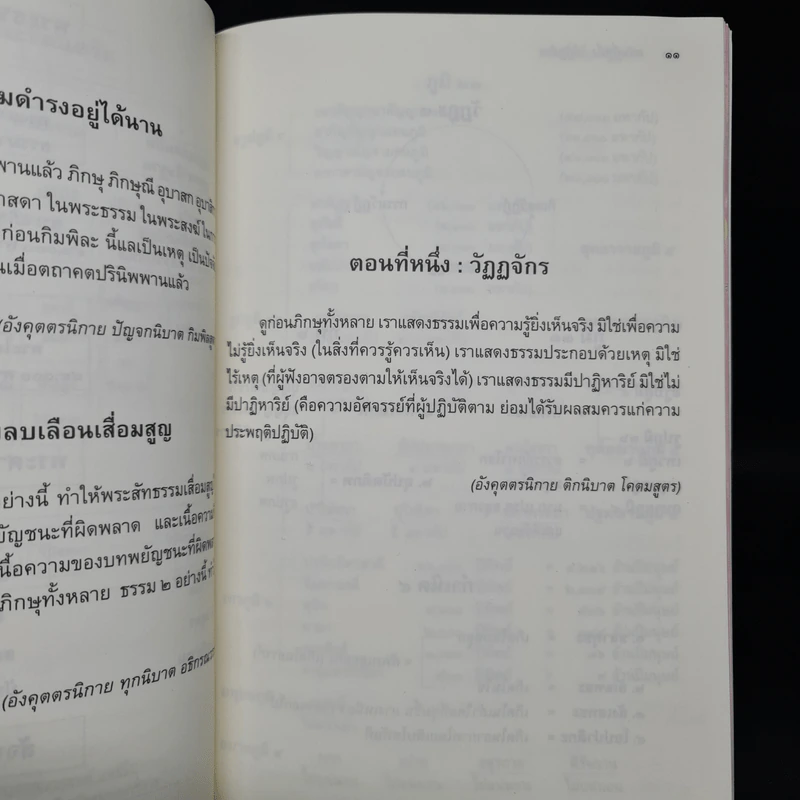 มดำรงอยู่ได้นาน
พานแล้ว ภิกษุ ภิกษุณี อุบาสก
าสดา ในพระธรรม ในพระสงฆ์
ก่อนกิมพิละ นี้แลเป็นเหตุ
นเมื่อตถาคตปรินิพพานแล้ว
(อังคุตตรนิกาย ปัญจกนิบาต
ลบเลือนเสื่อมสูญ
อย่างนี้ ทำให้พระสัทธรรมเสื่อมสูญ
ยัญชนะที่ผิดพลาด และเนื้อความ
นื้อความของบทพยัญชนะที่ผิด
ภิกษุทั้งหลาย ธรรม ๒ อย่างนี้
(อังคุตตรนิกาย ทุกนิบาต
๑๑
ตอนที่หนึ่ง : วัฏฏจักร
ดูก่อนภิกษุทั้งหลาย เราแสดงธรรมเพื่อความรู้ยิ่งเห็นจริง มิใช่เพื่อความ
ไม่รู้ยิ่งเห็นจริง (ในสิ่งที่ควรรู้ควรเห็น) เราแสดงธรรมประกอบด้วยเหตุ มิใช่
ไร้เหตุ (ที่ผู้ฟังอาจตรองตามให้เห็นจริงได้) เราแสดงธรรมมีปาฏิหาริย์ มิใช่ไม่
มีปาฏิหาริย์ (คือความอัศจรรย์ที่ผู้ปฏิบัติตาม ย่อมได้รับผลสมควรแก่ความ
ประพฤติปฏิบัติ)
(อังคุตตรนิกาย ติกนิบาต โคตมสูตร)